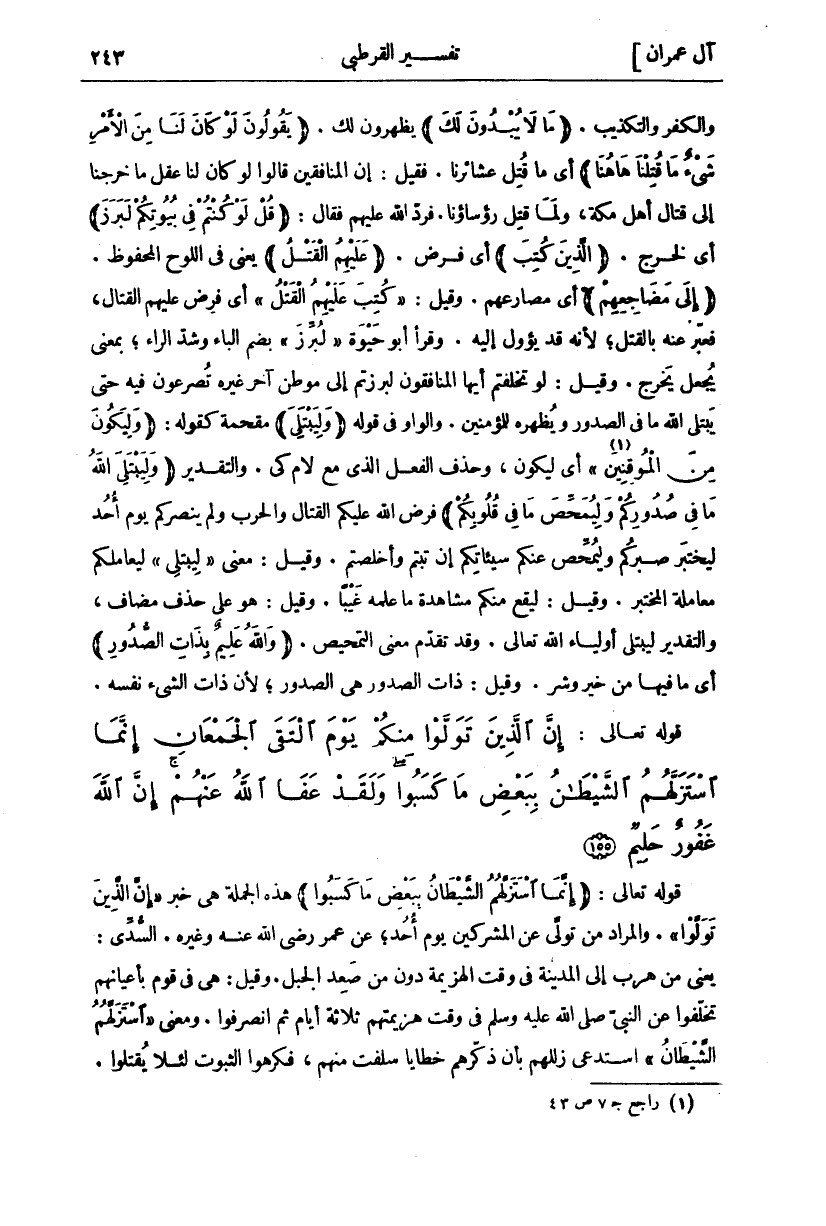 آل عمران ] تفسير القرطبي ٢٤٣
والكفر والتكذيب . ﴿ مَا لَا يُبْدُونَ لَكَ ﴾ يظهرون لك . ﴿ يَقُولُونَ لَوْ كَانَ لَنَا مِنَ الْأَمْرِ
شَىْءٌ مَا قُتِلْنَا هَاهُنَا ﴾ أى ما قُتِل عشائرنا . فقيل : إن المنافقين قالوا لو كان لنا عقل ما خرجنا
إلى قتال أهل مكة، ولمَا قتِل رؤساؤنا. فردّ الله عليهم فقال : ﴿ قُلْ لَوْ كُنْتُمْ فِى بُيُوتِكُمْ لَبَرَزَ ﴾
أى لخرج . ﴿ الَّذِينَ كُتِبَ ﴾ أى فرض . ﴿ عَلَيْهِمُ الْقَتْلُ ﴾ يعنى فى اللوح المحفوظ .
﴿ إِلَى مَضَاجِعِهِمْ ﴾ أى مصارعهم . وقيل : « كُتِبَ عَلَيْهِمُ الْقَتْلُ » أى فرِض عليهم القتال،
فعبّر عنه بالقتل؛ لأنه قد يؤول إليه . وقرأ أبو حَيْوَة « لَبُرِّزَ » بضم الباء وشدّ الراء ؛ بمعنى
يُجعل يَخرج . وقيل : لو تخلفتم أيها المنافقون لبرزتم إلى موطن آخر غيره تُصرعون فيه حتى
يَبتلى الله ما فى الصدور ويُظهره للمؤمنين . والواو فى قوله ﴿ وَلِيَبْتَلِىَ ﴾ مقحمة كقوله : ﴿ وَلِيَكُونَ
مِنَ الْمُوقِنِينَ » (١) أى ليكون ، وحذف الفعل الذى مع لام كى . والتقدير ﴿ وَلِيَبْتَلِىَ اللهُ
مَا فِى صُدُورِكُمْ وَلِيُمَحِّصَ مَا فِى قُلُوبِكُمْ ﴾ فرض الله عليكم القتال والحرب ولم ينصركم يوم أُحُد
ليختبَر صبركم وليُمحِّص عنكم سيئاتِكم إن تبتم وأخلصتم . وقيل : معنى « لِيبتلِى » ليعاملكم
معاملة المختبر . وقيل : ليقع منكم مشاهدة ما علمه غَيْبًا . وقيل : هو على حذف مضاف ،
والتقدير ليبتلى أولياء الله تعالى . وقد تقدّم معنى التمحيص . ﴿ وَاللهُ عَلِيمٌ بِذَاتِ الصُّدُورِ ﴾
أى ما فيها من خير وشر . وقيل : ذات الصدور هى الصدور ؛ لأن ذات الشىء نفسه .
قوله تعالى : إِنَّ ٱلَّذِينَ تَوَلَّوْا مِنكُمْ يَوْمَ ٱلْتَقَى ٱلْجَمْعَانِ إِنَّمَا
ٱسْتَزَلَّهُمُ ٱلشَّيْطَـٰنُ بِبَعْضِ مَا كَسَبُوا وَلَقَدْ عَفَا ٱللَّهُ عَنْهُمْ إِنَّ ٱللَّهَ
غَفُورٌ حَلِيمٌ ﴿١٥٥﴾
قوله تعالى : ﴿ إِنَّمَا ٱسْتَزَلَّهُمُ الشَّيْطَانُ بِبَعْضِ مَا كَسَبُوا ﴾ هذه الجملة هى خبر «إِنَّ الَّذِينَ
تَوَلَّوْا» . والمراد من تولّى عن المشركين يوم أُحُد؛ عن عمر رضى الله عنه وغيره . السُّدِّى :
يعنى من هرب إلى المدينة فى وقت الهزيمة دون من صَعِد الجبل. وقيل: هى فى قوم بأعيانهم
تخلّفوا عن النبىّ صلى الله عليه وسلم فى وقت هزيمتهم ثلاثة أيام ثم انصرفوا . ومعنى «ٱسْتَزَلَّهُمُ
الشَّيْطَانُ » استدعى زللهم بأن ذكّرهم خطايا سلفت منهم ، فكرهوا الثبوت لئلا يُقتلوا .
(١) راجع ج ٧ ص ٤٣